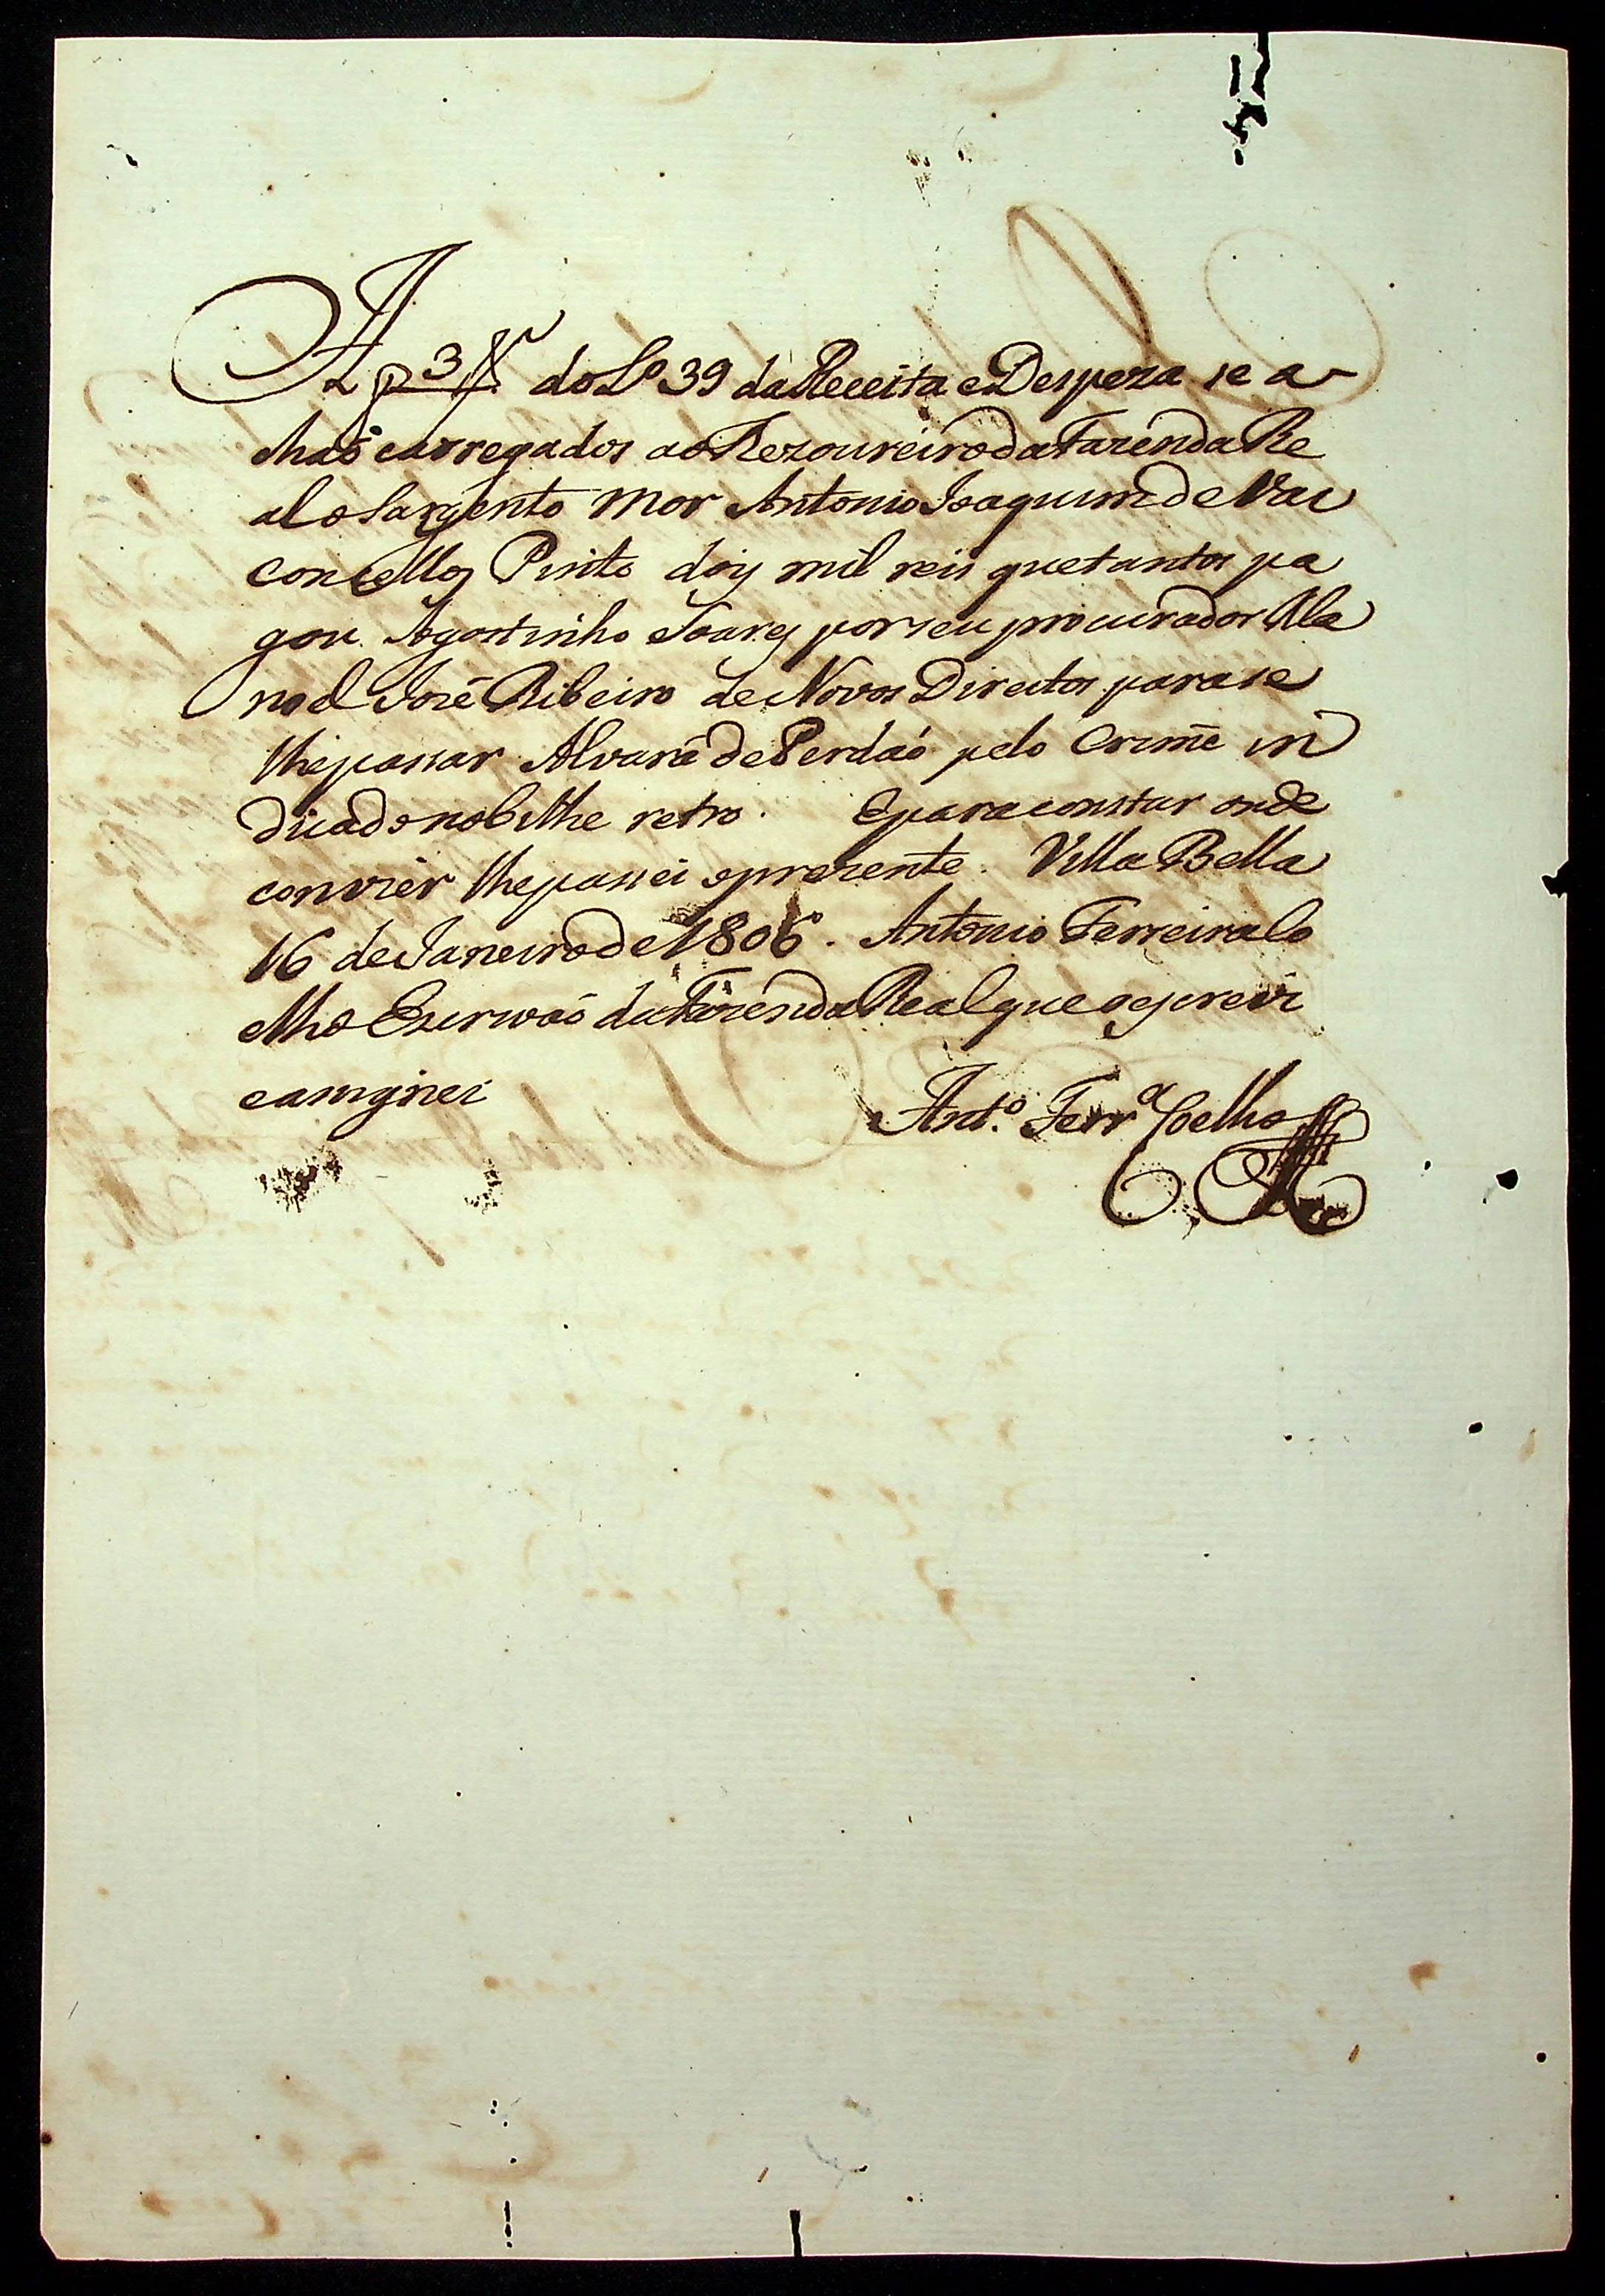 A f 3 V do Lº 39 da Receita e Despeza se a-
chaõ carregados ao Thezoureiro da Fazenda Re
al o Sargento mor Antonio Joaquim de Vas
concellos Pinto dois mil reis que tantos pa
gou Agostinho Soares por seu procurador Ma
noel José Ribeiro de Novos Direitos para se
lhe passar Alvará de Perdaõ pelo Crime in
dicado no bilhe retro. E para constar onde
convier lhe passei o prezente. Villa Bella
16 de Janeiro de 1806. Antonio Ferreira Co
elho Escrivaõ da Fazenda Real que o escrevi
e assignei
Antº. Ferrª Coelho